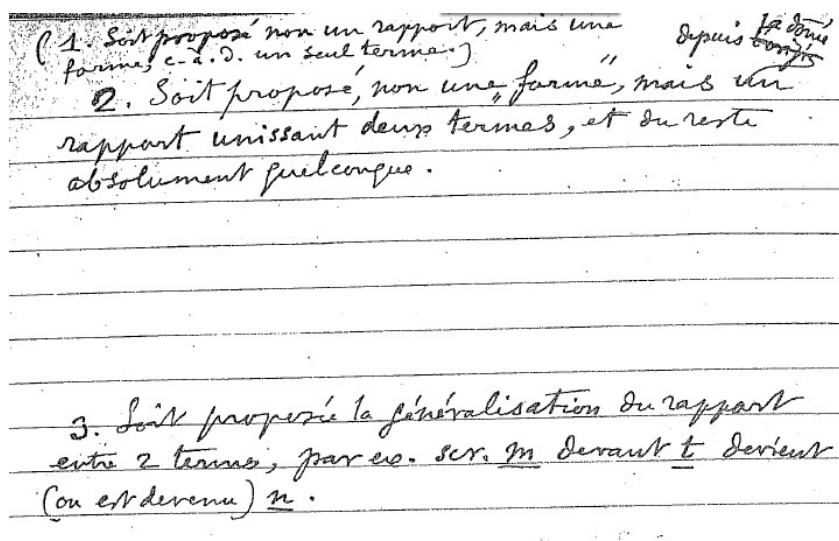 (1. Soit proposé non un rapport, mais une
forme, c.-à.d. un seul terme.)
depuis
2. Soit proposé, non une "forme", mais un
rapport unissant deux termes, et du reste
absolument quelconque.
3. Soit proposée la généralisation du rapport
entre 2 termes, par ex. scr. m devant t devient
(ou est devenu) n.